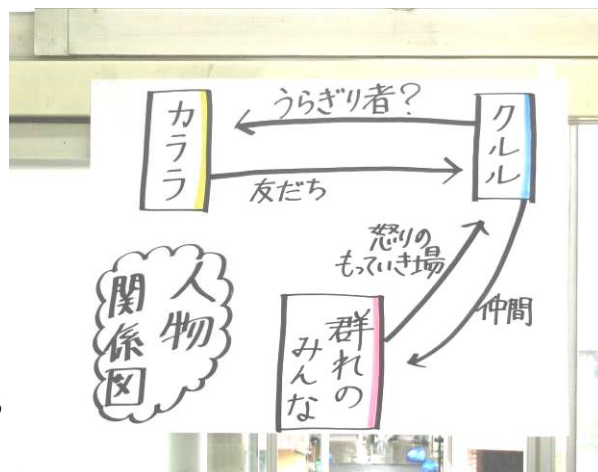 うらぎり者?
カララ
クルル
友だち
怒りの
もっていき場
仲間
群れの
みんな
人物
関係図